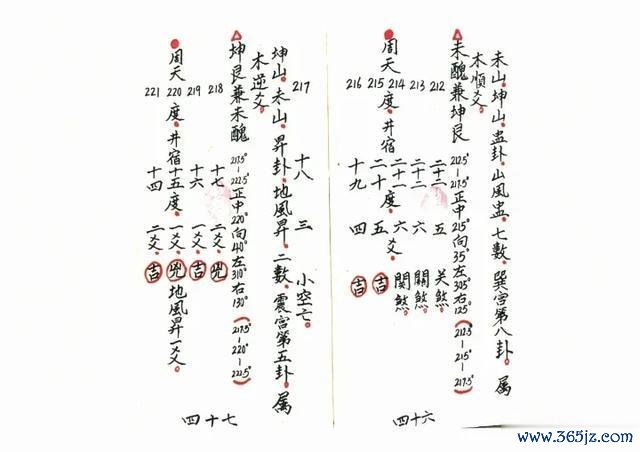 未山。坤山。蛊卦。山風蛊。七數。巽宮第八卦。属
木順爻。
未醜兼坤艮 212.5°—217.5°正中215°向35°左305°右125°(212.5°—215°—217.5°)
212 二十二 五 关煞。
213 二十二 六 關煞。
周天214度。井宿二十一度。六爻。関煞。
215 二十 五 吉
216 十九 四 吉
四十六
217 十八 三 小空亡。
坤山。未山。昇卦。地風昇。二數。震宮第五卦。属
木逆爻。
坤艮兼未醜 217.5°—222.5°正中220°向40°左310°右130°(217.5°—220°—222.5°)
218 十七 二爻。兇
219 十六 一爻。吉
周天220度。井宿十五度。一爻。兇地風昇一爻。
221 十四 二爻。吉
四十七
www.365jz.com